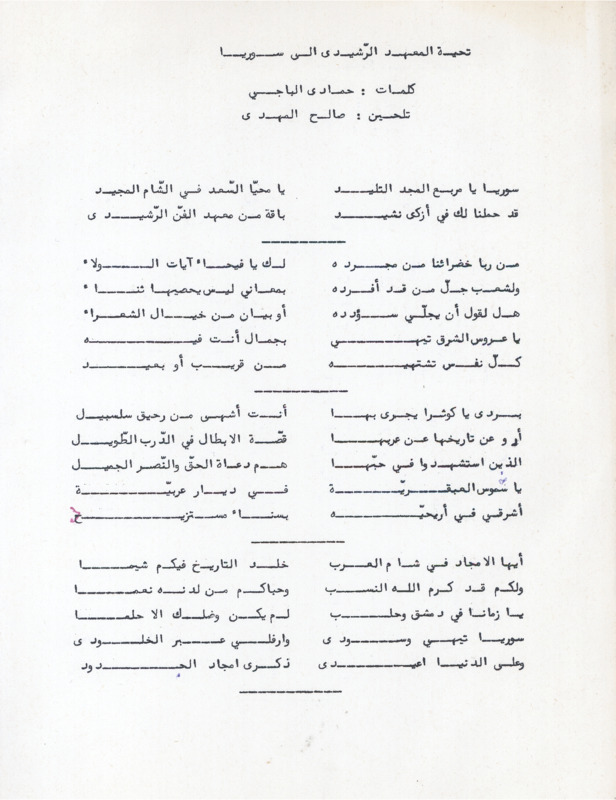 تحية المعهد الرّشيدى الى سوريا
كلمات : حمادى الباجي
تلحين : صالح المهدى
سوريا يا مربع المجد التليد يا محيّا السّعد في الشّام المجيد
قد حملنا لك في أزكى نشيد باقة من معهد الفنّ الرّشيدى
من ربا خضرائنا من مجرده لك يا فيحاء آيات الولاء
ولشعب جلّ من قد أفرده بمعاني ليس يحصيها ثناء
هل لقول أن يجلّي سؤدده أو بيان من خيال الشعراء
يا عروس الشرق تيهي بجمال أنت فيه
كلّ نفس تشتهيه من قريب أو بعيد
بردى يا كوثرا يجرى بها أنت أشهى من رحيق سلسبيل
أرو عن تاريخها عن عربها قصّة الابطال في الدّرب الطّويل
الذين استشهدوا في حبّها هم دعاة الحقّ والنّصر الجميل
يا شموس العبقريّة في ديار عربيّة
أشرقي في أريحيّه بسناء مستزيح
أيها الامجاد في شام العرب خلد التاريخ فيكم شيما
ولكم قد كرم الله النسب وحباكم من لدنه نعما
يا زمانا في دمشق وحلب لم يكن وصلك الا حلما
سوريا تيهي وسودى وارفلي عبر الخلودى
وعلى الدنيا اعيدى ذكرى امجاد الحدود